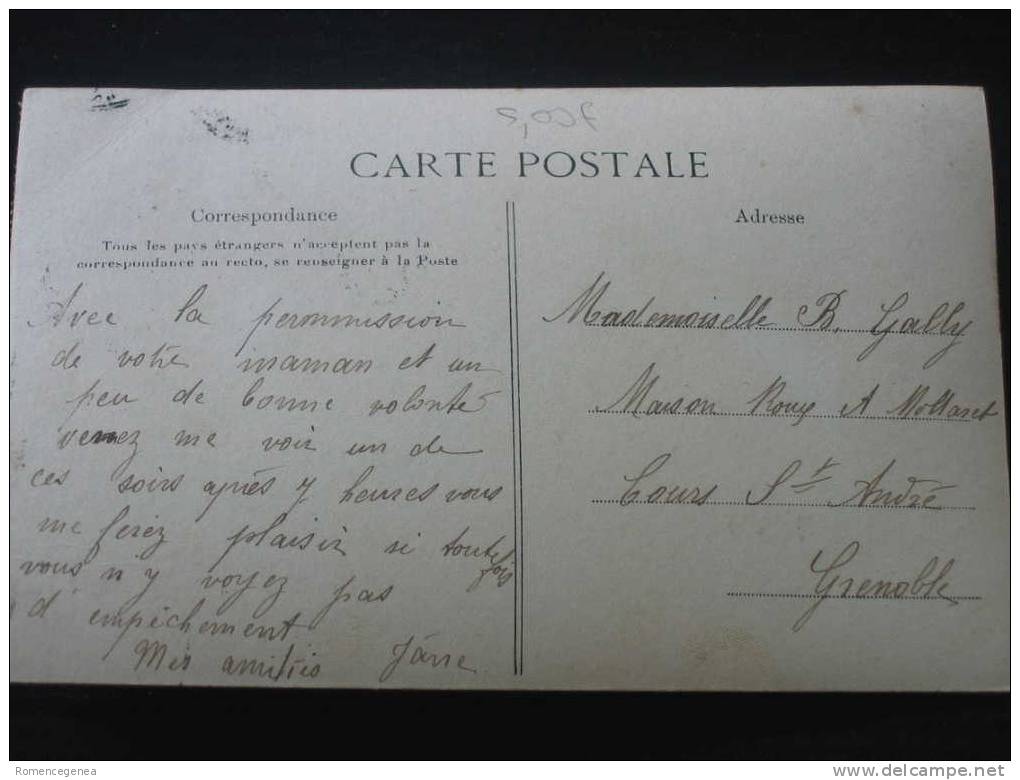 5,00f
CARTE POSTALE
Correspondance
Tous les pays étrangers n'acceptent pas la
correspondance au recto, se renseigner à la Poste
Avec la permmission
de votre maman et un
peu de bonne volonté
venez me voir un de
ces soirs après 7 heures vous
me ferez plaisir si toute
fois
vous n'y voyez pas
d'empêchement
Mes amitiés
Adresse
Mademoiselle B. Gally
Maison Roux A Mollaret
Cours St André
Grenoble
Romencegenea
www.delcampe.net